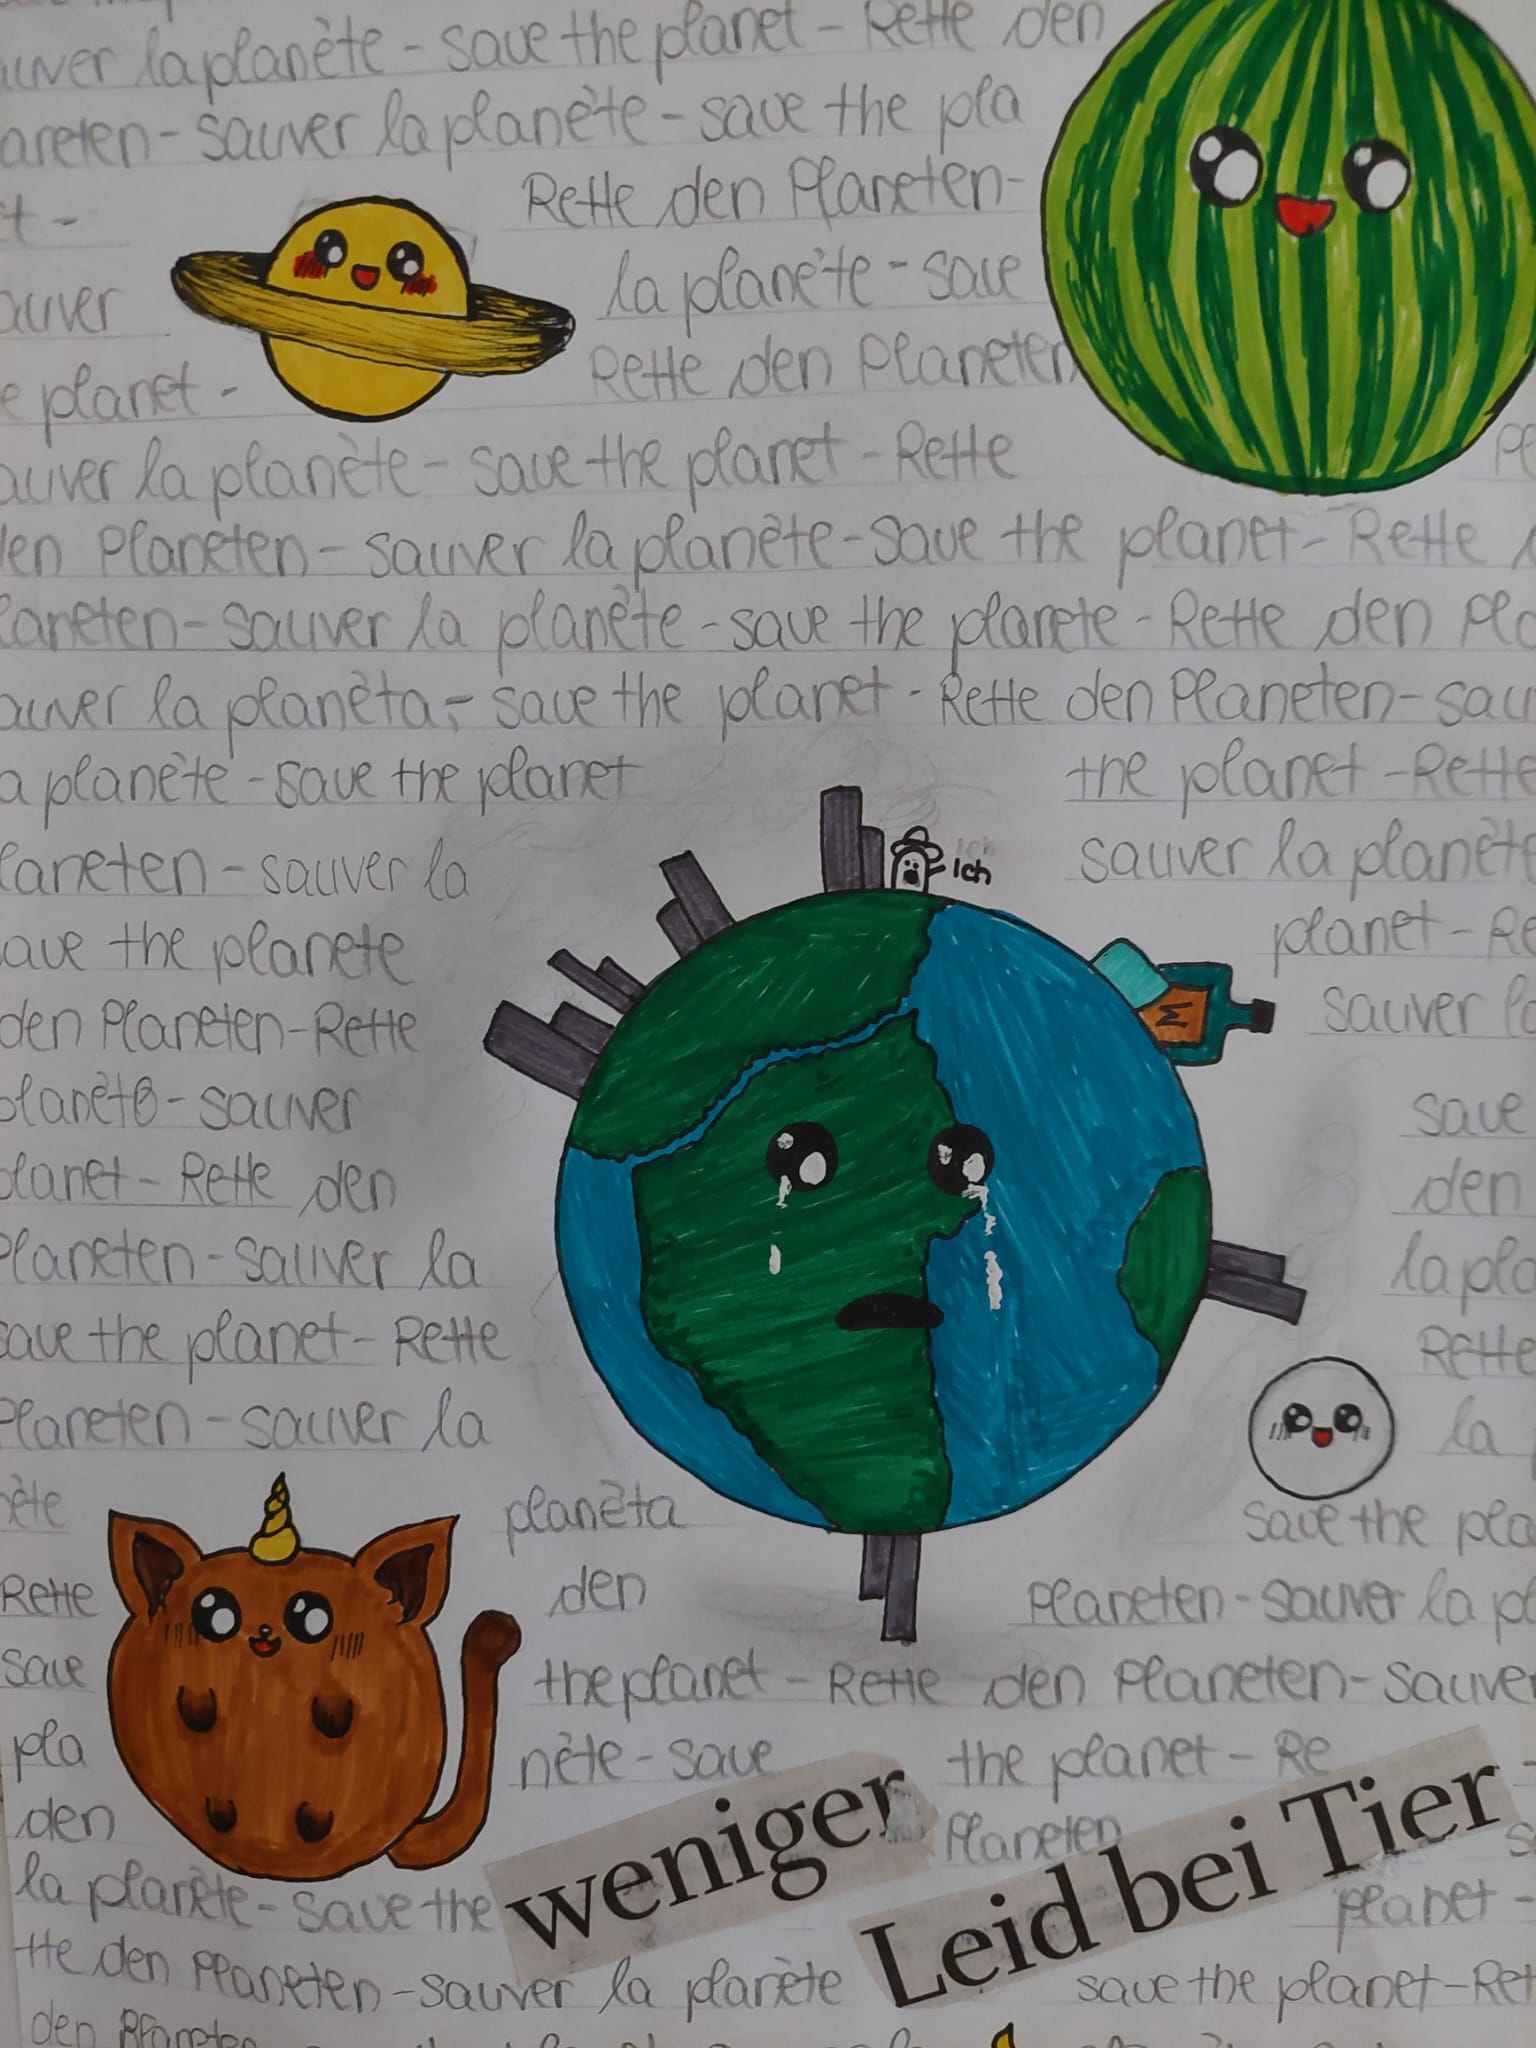 auver la planète - save the planet - Rette den
aneten - sauver la planète - save the pla
t - Rette den Planeten -
auver la planète - save
e planet - Rette den Planeten
auver la planète - save the planet - Rette
den Planeten - sauver la planète - save the planet - Rette
laneten - sauver la planète - save the planete - Rette den Pla
auver la planèta - save the planet - Rette den Planeten - sau
a planète - save the planet the planet - Rette
Ich
laneten - sauver la sauver la planète
ave the planete planet - Re
M
den Planeten - Rette sauver la
planète - sauver save
planet - Rette den den
Planeten - sauver la la pla
save the planet - Rette Rette
Planeten - sauver la la
ète planèta save the pla
Rette den Planeten - sauver la pl
save the planet - Rette den Planeten - sauver
pla nète - save the planet - Re
den Planeten
weniger
Leid bei Tier
la planète - save the planet -
tte den Planeten - sauver la planète save the planet - Ret
den Planeten